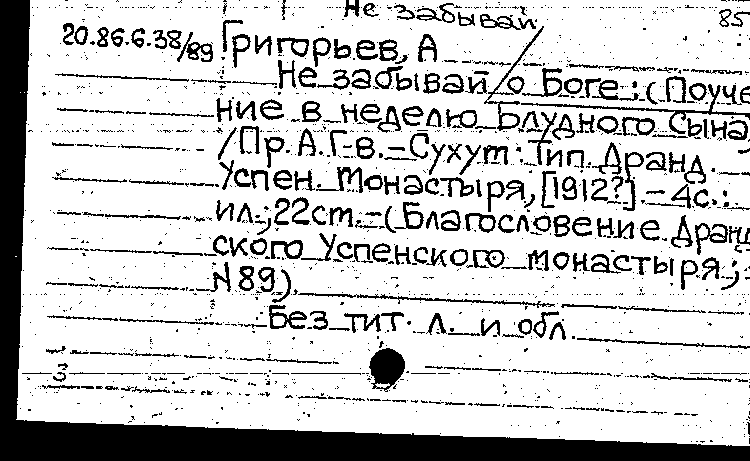 Не забывай 85
20.86.6.38/89 Григорьев, А
Не забывай / о Боге : (Поуче
ние в неделю Блудного Сына)
/Пр. А. Г-в. – Сухум : Тип. Дранд.
Успен. Монастыря, [1912?]. – 4с. :
ил.; 22cm. – (Благословение Дранд
ского Успенского монастыря ;
N 89).
Без тит. л. и обл.
3